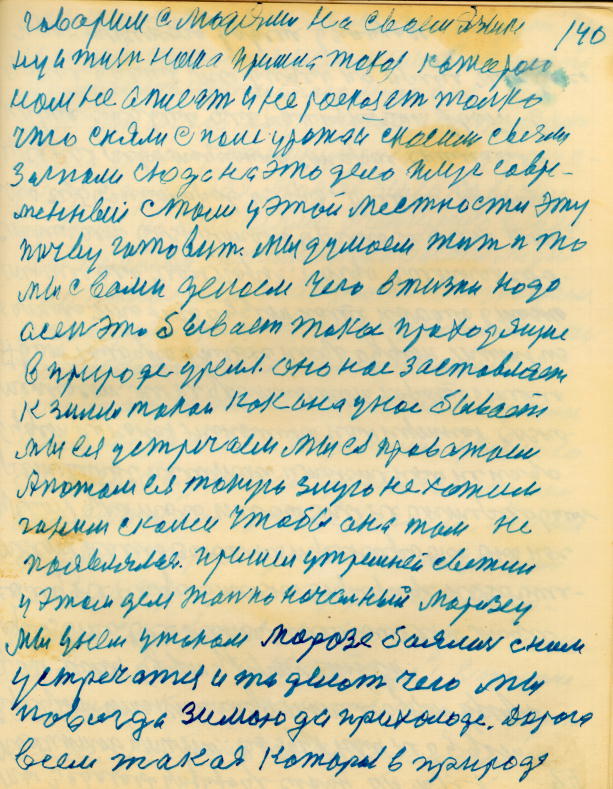 говарим с людями на своем языке 140
ну и жизн наша пришла такая которою
нам не описат и не росказат толко
что сняли с поля урожай скосили свезли
запахали сюда на это дело плуг совре-
менный стали у этой местности эту
почву готовит. мы думаем жит и то
мы с вами делаем чего в жизни надо
асен это бывает такое проходящие
в природе время. оно нас заставляет
к зиме такой как она у нас бывает
мы ея устречаем мы ея проважаем
А потом ея такую злую не хотим
гарим скажем чтобы она там не
появлялас. пришел утренней светии
у этом деле такно началный морозец
мы днем у таком морозе боялис с ним
устречатся и то делат чего мы
повсигда зимою да при холоде. Дорога
всем такая которая в природе